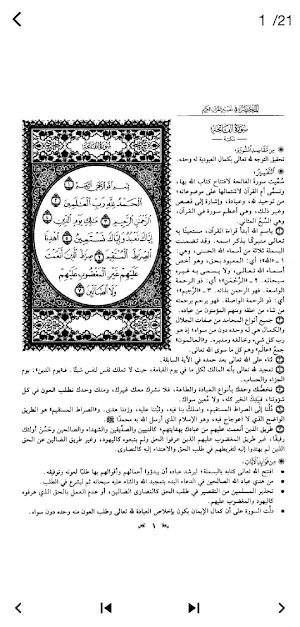 1 /21
المختصر في تفسير القرآن الكريم
سورة الفاتحة
مكية
من مقاصد السورة:
تحقيق التوجه لله تعالى بكمال العبودية له وحده.
التفسير:
سُمِّيت سورة الفاتحة لافتتاح كتاب الله بها،
وتسمى أم القرآن لاشتمالها على موضوعاته؛
من توحيد لله، وعبادة، وإشارة إلى قصص
وغير ذلك، وهي أعظم سورة في القرآن،
وهي السبع المثاني.
باسم الله أبدأ قراءة القرآن، مستعينًا به
تعالى متبركًا بذكر اسمه. وقد تضمنت
البسملة ثلاثة من أسماء الله الحسنى، وهي:
١ - «الله»؛ أي: المعبود بحق، وهو أخص
أسماء الله تعالى، ولا يسمى به غيره
سبحانه. ٢ - «الرحمن»؛ أي: ذو الرحمة
الواسعة. فهو الرحمن بذاته. ٣ - «الرحيم»؛
أي: ذو الرحمة الواصلة. فهو يرحم برحمته
من شاء من خلقه ومنهم المؤمنون من عباده.
جميع أنواع المحامد من صفات الجلال
والكمال هي له وحده دون من سواه؛ إذ هو
رب كل شيء وخالقه ومدبره. و«العالمون»
جمع «عالم» وهم كل ما سوى الله تعالى.
ثناء على الله تعالى بعد حمده في الآية السابقة.
تمجيد لله تعالى بأنه المالك لكل ما في يوم القيامة، حيث لا تملك نفس لنفس شيئًا. فـ«يوم الدين»: يوم
الجزاء والحساب.
نخصك وحدك بأنواع العبادة والطاعة، فلا نشرك معك غيرك، ومنك وحدك نطلب العون في كل
شؤوننا، فبيدك الخير كله، ولا معين سواك.
دُلَّنا إلى الصراط المستقيم، واسلك بنا فيه، وثبتنا عليه، وزدنا هدى. و«الصراط المستقيم» هو الطريق
الواضح الذي لا اعوجاج فيه، وهو الإسلام الذي أرسل الله به محمدًا ﷺ.
طريق الذين أنعمت عليهم من عبادك بهدايتهم؛ كالنبيين والصديقين والشهداء والصالحين وحسن أولئك
رفيقًا، غير طريق المغضوب عليهم الذين عرفوا الحق ولم يتبعوه كاليهود، وغير طريق الضالين عن الحق
الذين لم يهتدوا إليه لتفريطهم في طلب الحق والاهتداء إليه كالنصارى.
من فوائد الآيات:
• افتتح الله تعالى كتابه بالبسملة؛ ليرشد عباده أن يبدؤوا أعمالهم وأقوالهم بها طلبًا لعونه وتوفيقه.
• من هدي عباد الله الصالحين في الدعاء البدء بتمجيد الله والثناء عليه سبحانه ثم الشروع في الطلب.
• تحذير المسلمين من التقصير في طلب الحق كالنصارى الضالين، أو عدم العمل بالحق الذي عرفوه
كاليهود المغضوب عليهم.
• دلت السورة على أن كمال الإيمان يكون بإخلاص العبادة لله تعالى وطلب العون منه وحده دون من سواه.
سورة الفاتحة
بسم الله الرحمن الرحيم
الحمد لله رب العالمين
الرحمن الرحيم ملك يوم الدين
إياك نعبد وإياك نستعين اهدنا
الصراط المستقيم صراط الذين أنعمت
عليهم غير المغضوب عليهم
ولا الضالين
١